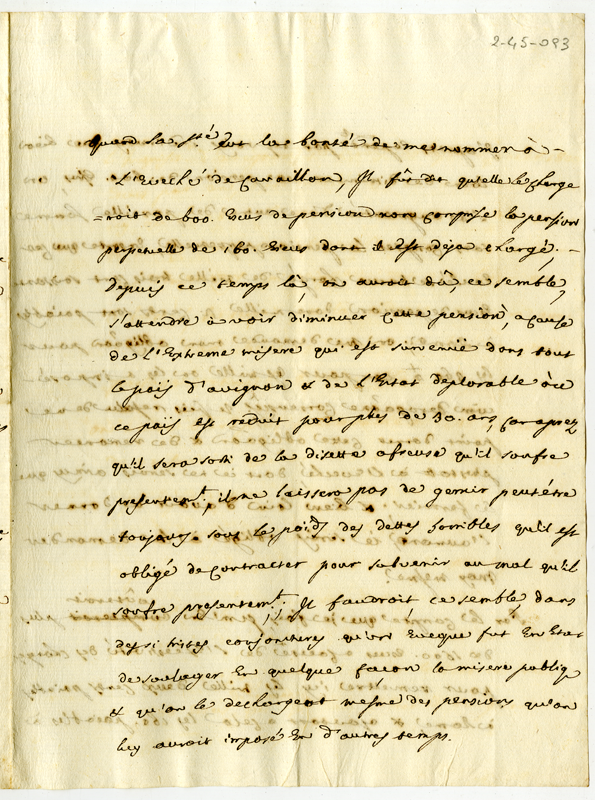 2-45-093
quand sa Sté. Eut la bonté de me nommer à -
L'Eveché de Cavaillon, Il fût dit qu'elle le charge
=roit de 600. Ecus de pension non comprise la pension
perpetuelle de 160. Ecus dont il est deja chargé, -
depuis ce temps là, on auroit dû, ce semble,
s'attendre à voir diminuer cette pension, a cause
de L'Extreme misere qui est survenuë dans tout
le païs d'avignon & de L'Etat deplorable à ce
ce païs est reduit pour plus de 30. ans, car aprez
qu'il sera sorti de la disette afreuse qu'il soufre
presentemt., il ne laissera pas de gemir peutétre
toujours sous le poids des dettes horribles qu'il est
obligé de contracter pour subvenir au mal qu'il
soufre presentemt.; Il faudroit ce semble, dans
des si tristes conjonctures qu'un Eveque fut En Etat
de soulager En quelque façon la misere publiq
& qu'on le dechargeat mesme des pensions qu'on
luy auroit imposé En d'autres temps.